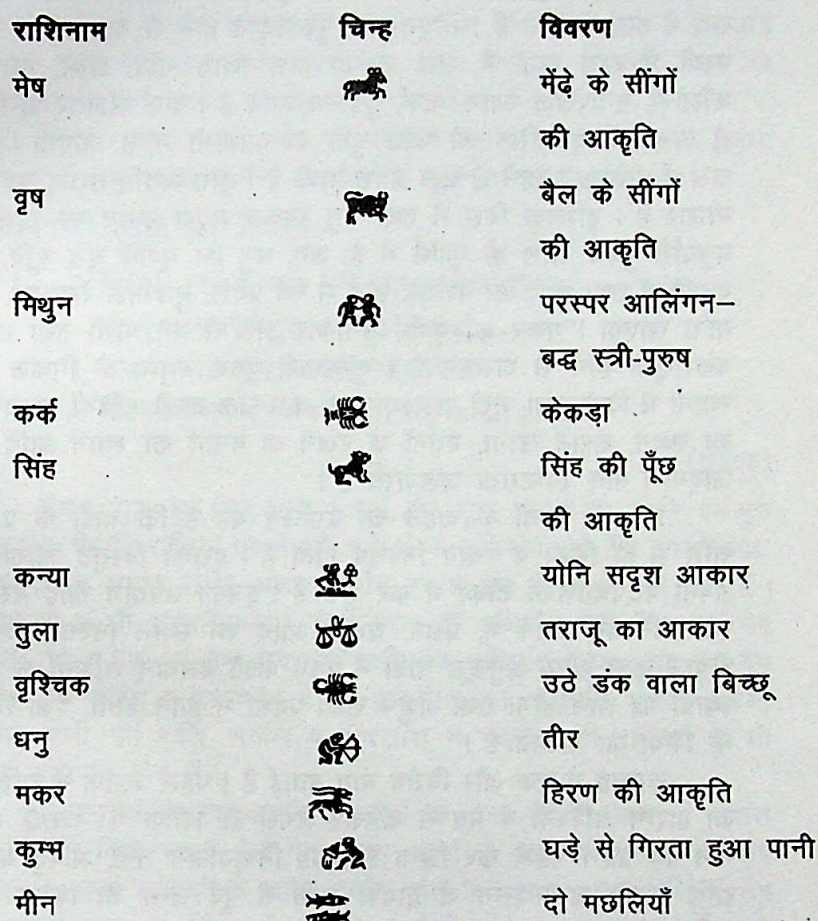 राशिनाम चिन्ह विवरण
मेष मेंढ़े के सींगों
की आकृति
वृष बैल के सींगों
की आकृति
मिथुन परस्पर आलिंगन–
बद्ध स्त्री-पुरुष
कर्क केकड़ा
सिंह सिंह की पूँछ
की आकृति
कन्या योनि सदृश आकार
तुला तराजू का आकार
वृश्चिक उठे डंक वाला बिच्छू
धनु तीर
मकर हिरण की आकृति
कुम्भ घड़े से गिरता हुआ पानी
मीन दो मछलियाँ